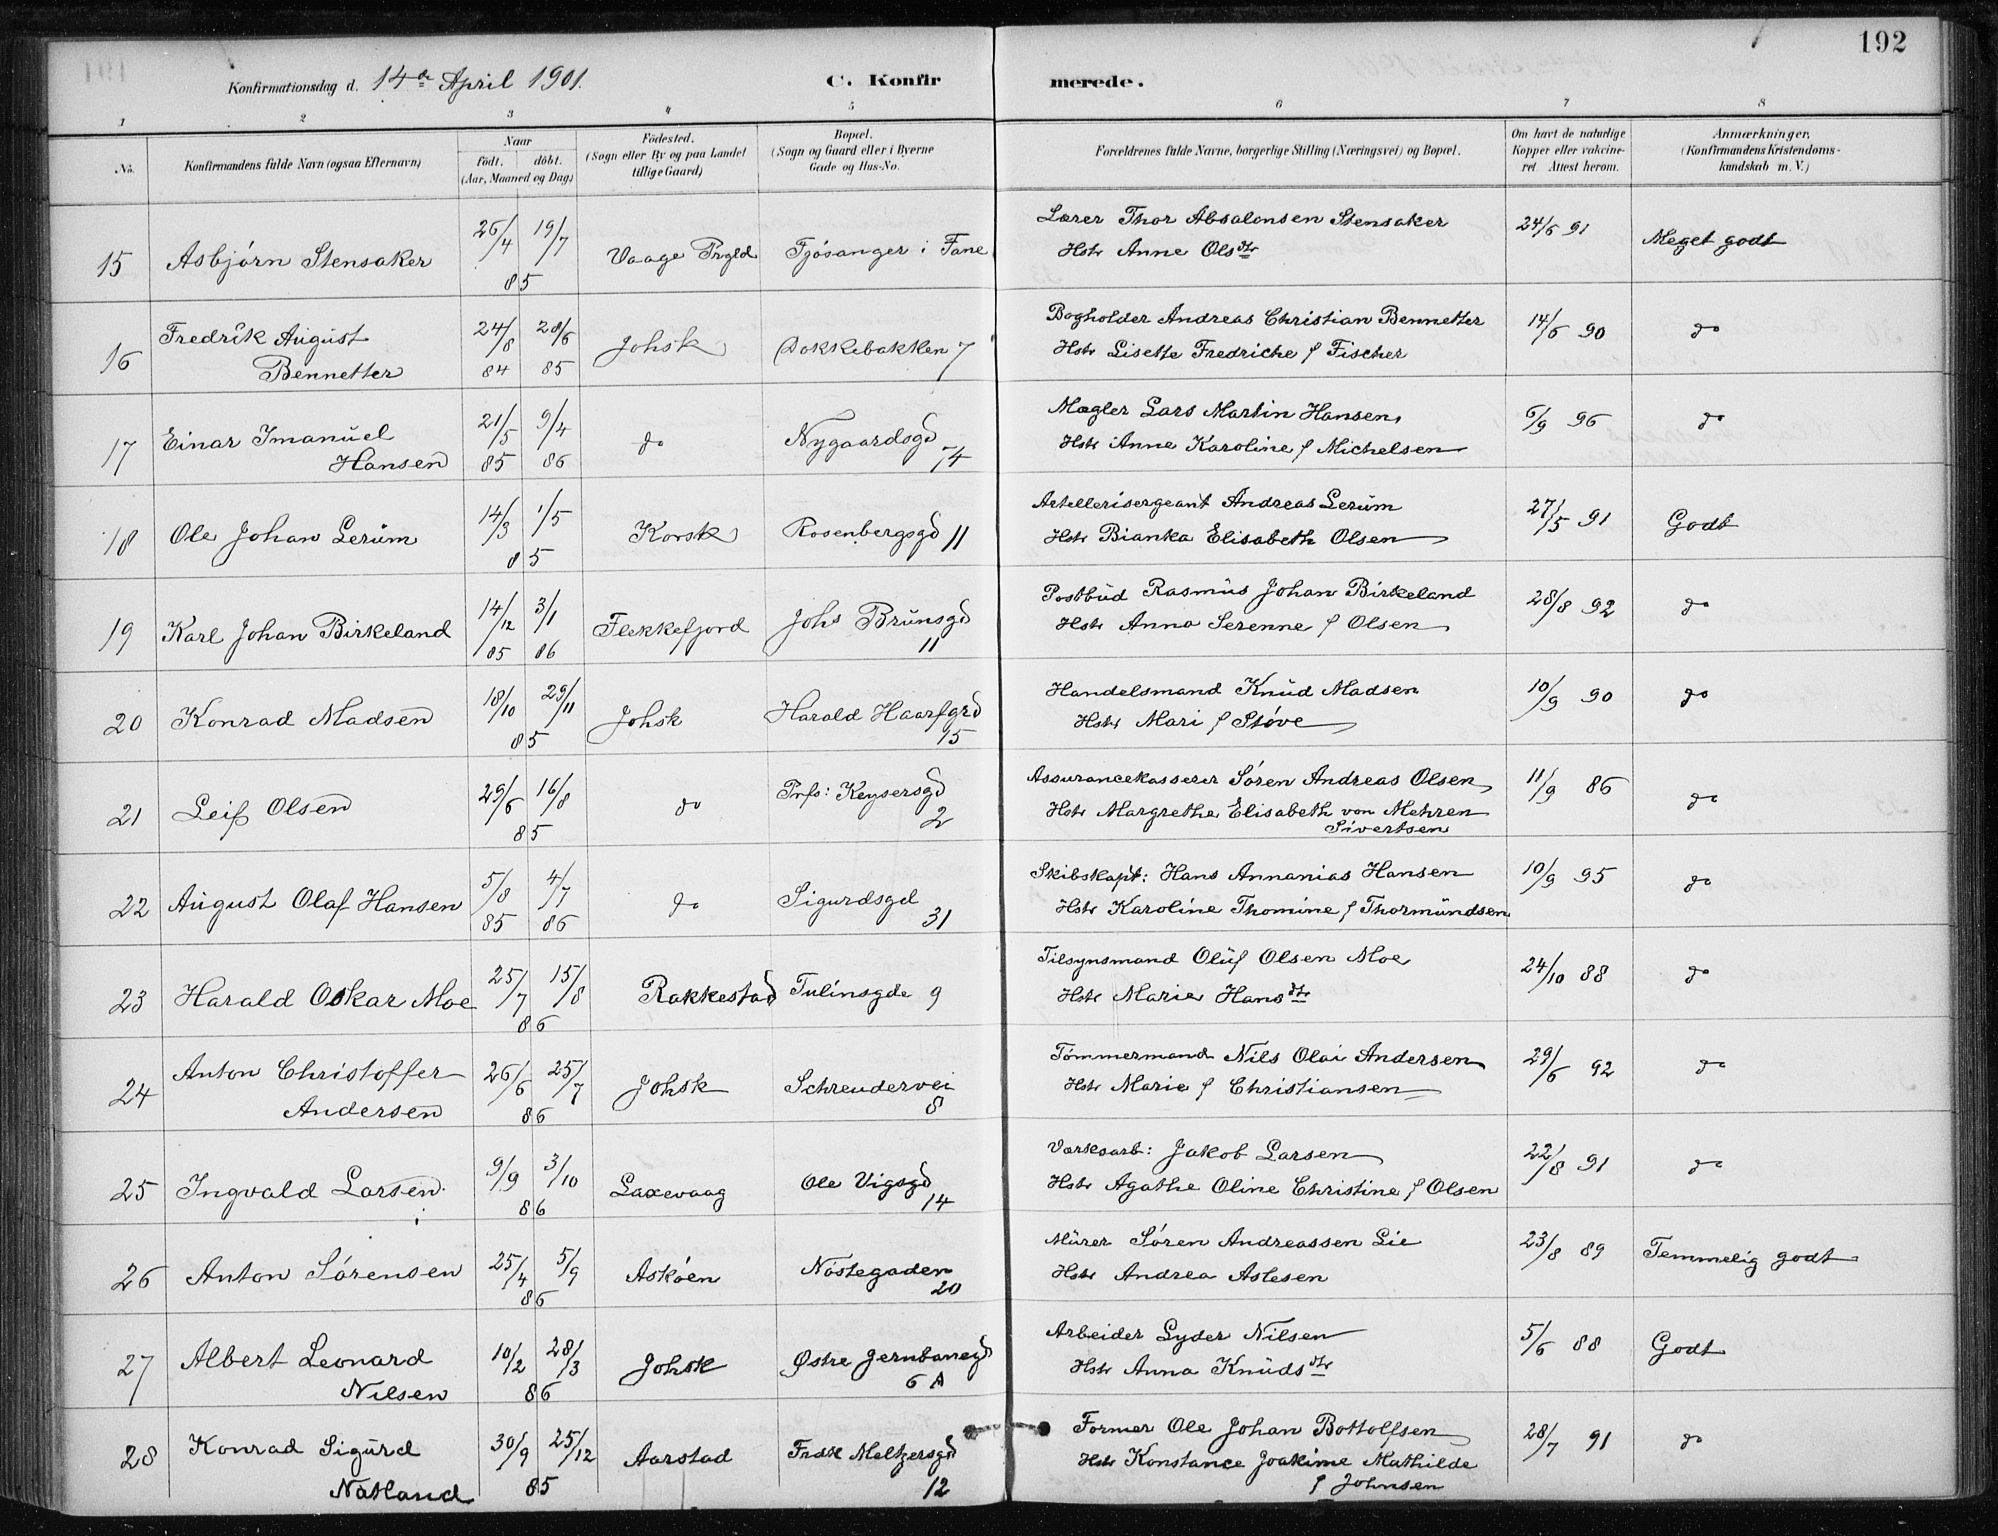 192
Konfirmationsdag d. 14de April 1901.
C. Konfirmerede.
1 2 3 4 5 6 7 8
No.
Konfirmandens fulde Navn (ogsaa Efternavn)
Naar
født. døbt.
(Aar, Maaned og Dag)
Fødested.
(Sogn eller By og paa Landet
tillige Gaard)
Bopæl.
(Sogn og Gaard eller i Byerne
Gade og Hus-No.
Forældrenes fulde Navne, borgerlige Stilling (Næringsvei) og Bopæl.
Om havt de naturlige
Kopper eller vakcine-
ret. Attest herom.
Anmærkninger.
(Konfirmandens Kristendoms-
kundskab m. V.)
15 Asbjørn Stensaker 26/4 19/7 85 Vaage Prgld Fjøsanger i Fane
Lærer Thor Absalonsen Stensaker 24/6 91 Meget godt
Hstr Anne Olsdtr
16 Fredrik August Bennetter 24/8 84 28/6 85 Johsk Dokkebakken 7
Bogholder Andreas Christian Bennetter 14/6 90 do
Hstr Lisette Fredriche f Fischer
17 Einar Imanuel Hansen 21/5 85 9/4 86 do Nygaardsgd 74
Mægler Lars Martin Hansen 6/9 96 do
Hstr Anne Karoline f Michelsen
18 Ole Johan Lerum 14/3 1/5 85 Korsk Rosenbergsgd 11
Artellerisergeant Andreas Lerum 27/5 91 Godt
Hstr Bianka Elisabeth Olsen
19 Karl Johan Birkeland 14/12 85 3/1 86 Flekkefjord Johs Brunsgd 11
Postbud Rasmus Johan Birkeland 28/8 92 do
Hstr Anna Serenne f Olsen
20 Konrad Madsen 18/10 29/11 85 Johsk Harald Haarfgrd 15
Handelsmand Knud Madsen 10/9 90 do
Hstr Mari f Støve
21 Leif Olsen 29/6 16/8 85 do Prfs: Keysersgd 2
Assurancekasserer Søren Andreas Olsen 11/9 86 do
Hstr Margrethe Elisabeth von Mehren
Sivertsen
22 August Olaf Hansen 5/8 85 4/7 86 do Sigurdsgd 31
Skibskapt: Hans Annanias Hansen 10/9 95 do
Hstr Karoline Thomine f Thormundsen
23 Harald Oskar Moe 25/7 15/8 86 Rakkestad Tulinsgde 9
Tilsynsmand Oluf Olsen Moe 24/10 88 do
Hstr Marie Hansdtr
24 Anton Christoffer Andersen 26/6 25/7 86 Johsk Schreudervei 8
Tømmermand Nils Olai Andersen 29/6 92 do
Hstr Marie f Christiansen
25 Ingvald Larsen 9/9 3/10 86 Laxevaag Ole Vigsgd 14
Værksarb: Jakob Larsen 22/8 91 do
Hstr Agathe Oline Christine f Olsen
26 Anton Sørensen 25/4 5/9 86 Askøen Nøstegaden 20
Murer Søren Andreassen Lie 23/8 89 Temmelig godt
Hstr Andrea Aslesen
27 Albert Leonard Nilsen 10/2 28/3 86 Johsk Østre Jernbanegd 6 A
Arbeider Lyder Nilsen 5/6 88 Godt
Hstr Anna Knudsdtr
28 Konrad Sigurd Natland 30/9 25/12 85 Aarstad Fredk Meltzersgd 12
Former Ole Johan Bottolfsen 28/7 91 do
Hstr Konstance Joakime Mathilde
f Johnsen